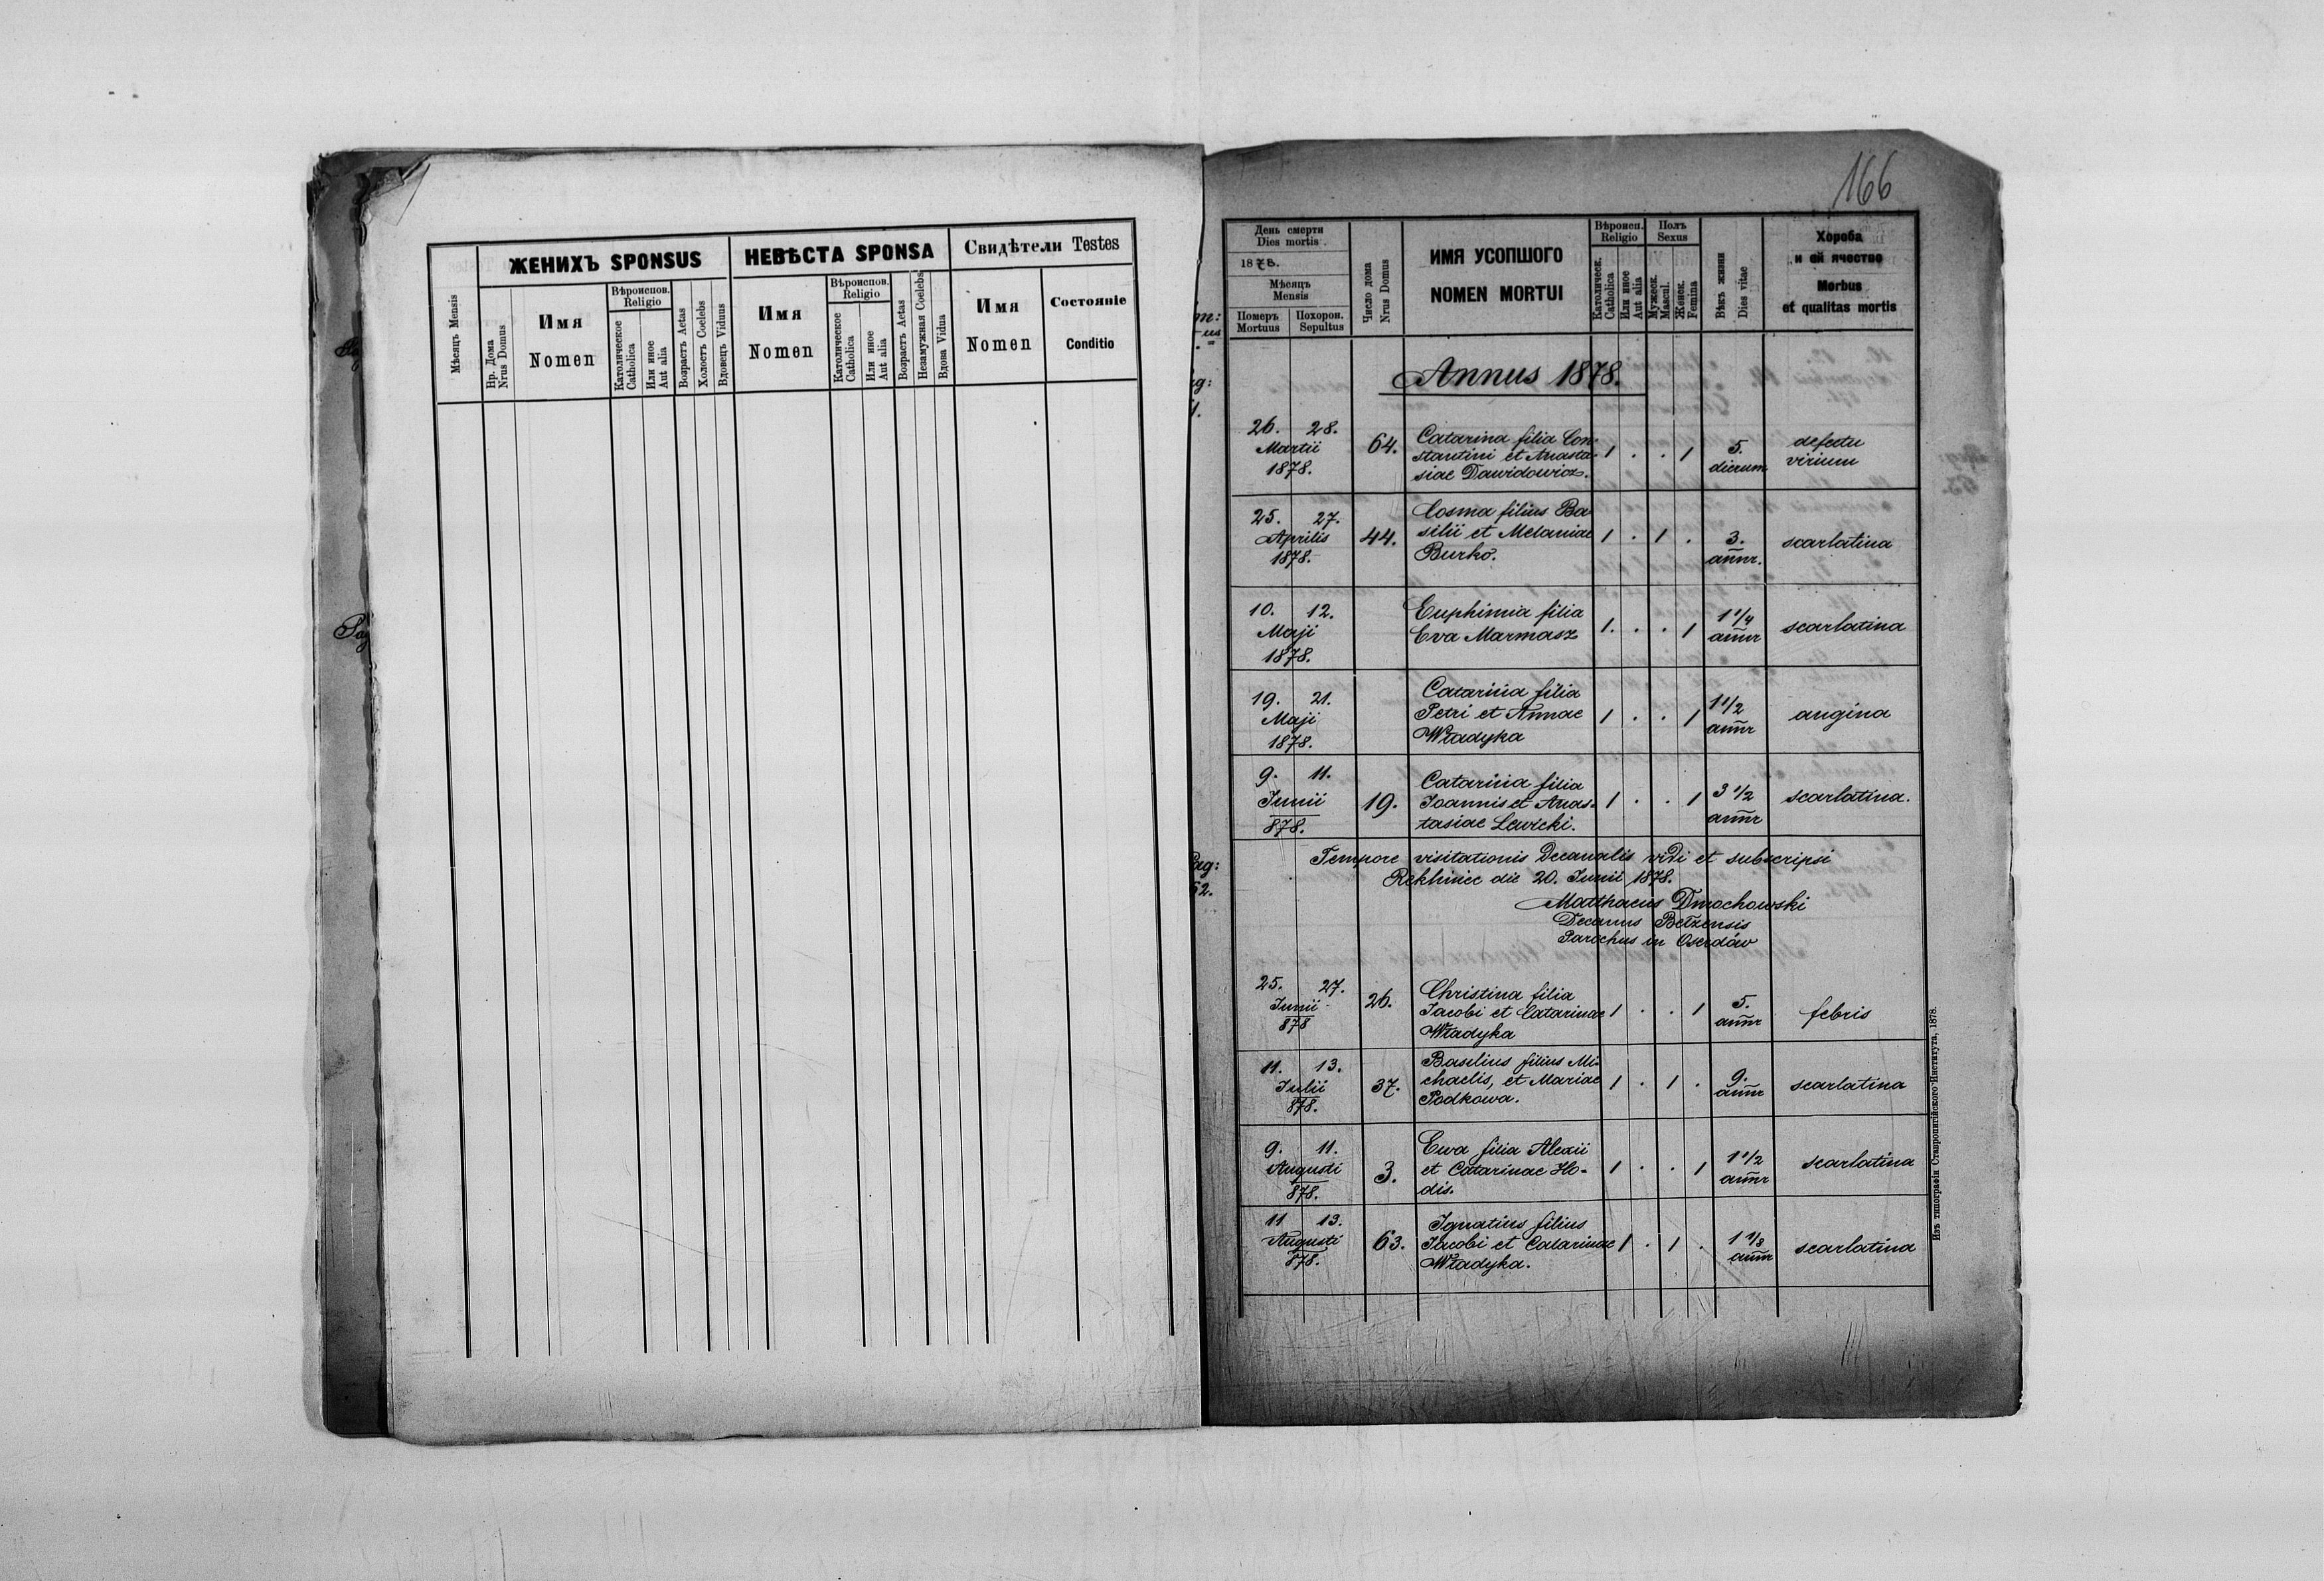 166
ЖЕНИХЪ SPONSUS
НЕВѢСТА SPONSA
Свидѣтели Testes
Мѣсяцъ Mensis
Нр. Дома
Nrus Domus
Имя
Nomen
Вѣроиспов.
Religio
Католическое
Catholica
Или иное
Aut alia
Возрастъ Aetas
Холостъ Coelebs
Вдовецъ Viduus
Имя
Nomen
Вѣроиспов.
Religio
Католическое
Catholica
Или иное
Aut alia
Возрастъ Aetas
Незамужная Coelebs
Вдова Vidua
Имя
Nomen
Состояніе
Conditio
День смерти
Dies mortis
1878.
Мѣсяцъ
Mensis
Померъ
Mortuus
Похорон.
Sepultus
Число дома
Nrus Domus
ИМЯ УСОПШОГО
NOMEN MORTUI
Вѣроисп.
Religio
Католическ.
Catholica
Или иное
Aut alia
Полъ
Sexus
Мужеск.
Mascul.
Женск.
Femina
Вѣкъ жизни
Dies vitae
Хороба
и ей ячество
Morbus
et qualitas mortis
Annus 1878.
26. 28.
Martii
1878.
64.
Catarina filia Con-
stantini et Anasta-
siae Dawidowicz.
1 . . 1
5.
dierum
defectu
virium
25. 27.
Aprilis
1878.
44.
Cosma filius Ba
silii et Melaniae
Burko.
1 . 1 .
3.
annr.
scarlatina
10. 12.
Maji
1878.
Euphimia filia
Eva Marmasz
1. . . 1
1 1/4
annr
scarlatina
19. 21.
Maji
1878.
Catarina filia
Petri et Annae
Władyka
1 . . 1
1 1/2
annr
angina
9. 11.
Junii
878.
19.
Catarina filia
Joannis et Anas-
tasiae Lewicki.
1 . . 1
3 1/2
annr
scarlatina.
Tempore visitationis Decanalis vidi et subscripsi
die 20. Junii 1878.
Matthaeus Dmochowski
Decanus Bełzensis
Parochus in Oserdów
25. 27.
Junii
878
26.
Christina filia
Jacobi et Catarinae
Władyka
1 . . 1
5.
annr
febris
11. 13.
Julii
878.
37.
Basilius filius Mi-
chaelis, et Mariae
Podkowa.
1 . 1 .
9.
annr
scarlatina
9. 11.
Augusti
878.
3.
Ewa filia Alexii
et Catarinae Ho-
dis.
1 . . 1
1 1/2
annr
scarlatina
11 13.
Augusti
878.
63.
Ignatius filius
Jacobi et Catarinae
Władyka.
1 . 1 .
1 1/3
annr
scarlatina
Изъ типографіи Ставропигійского Института, 1878.